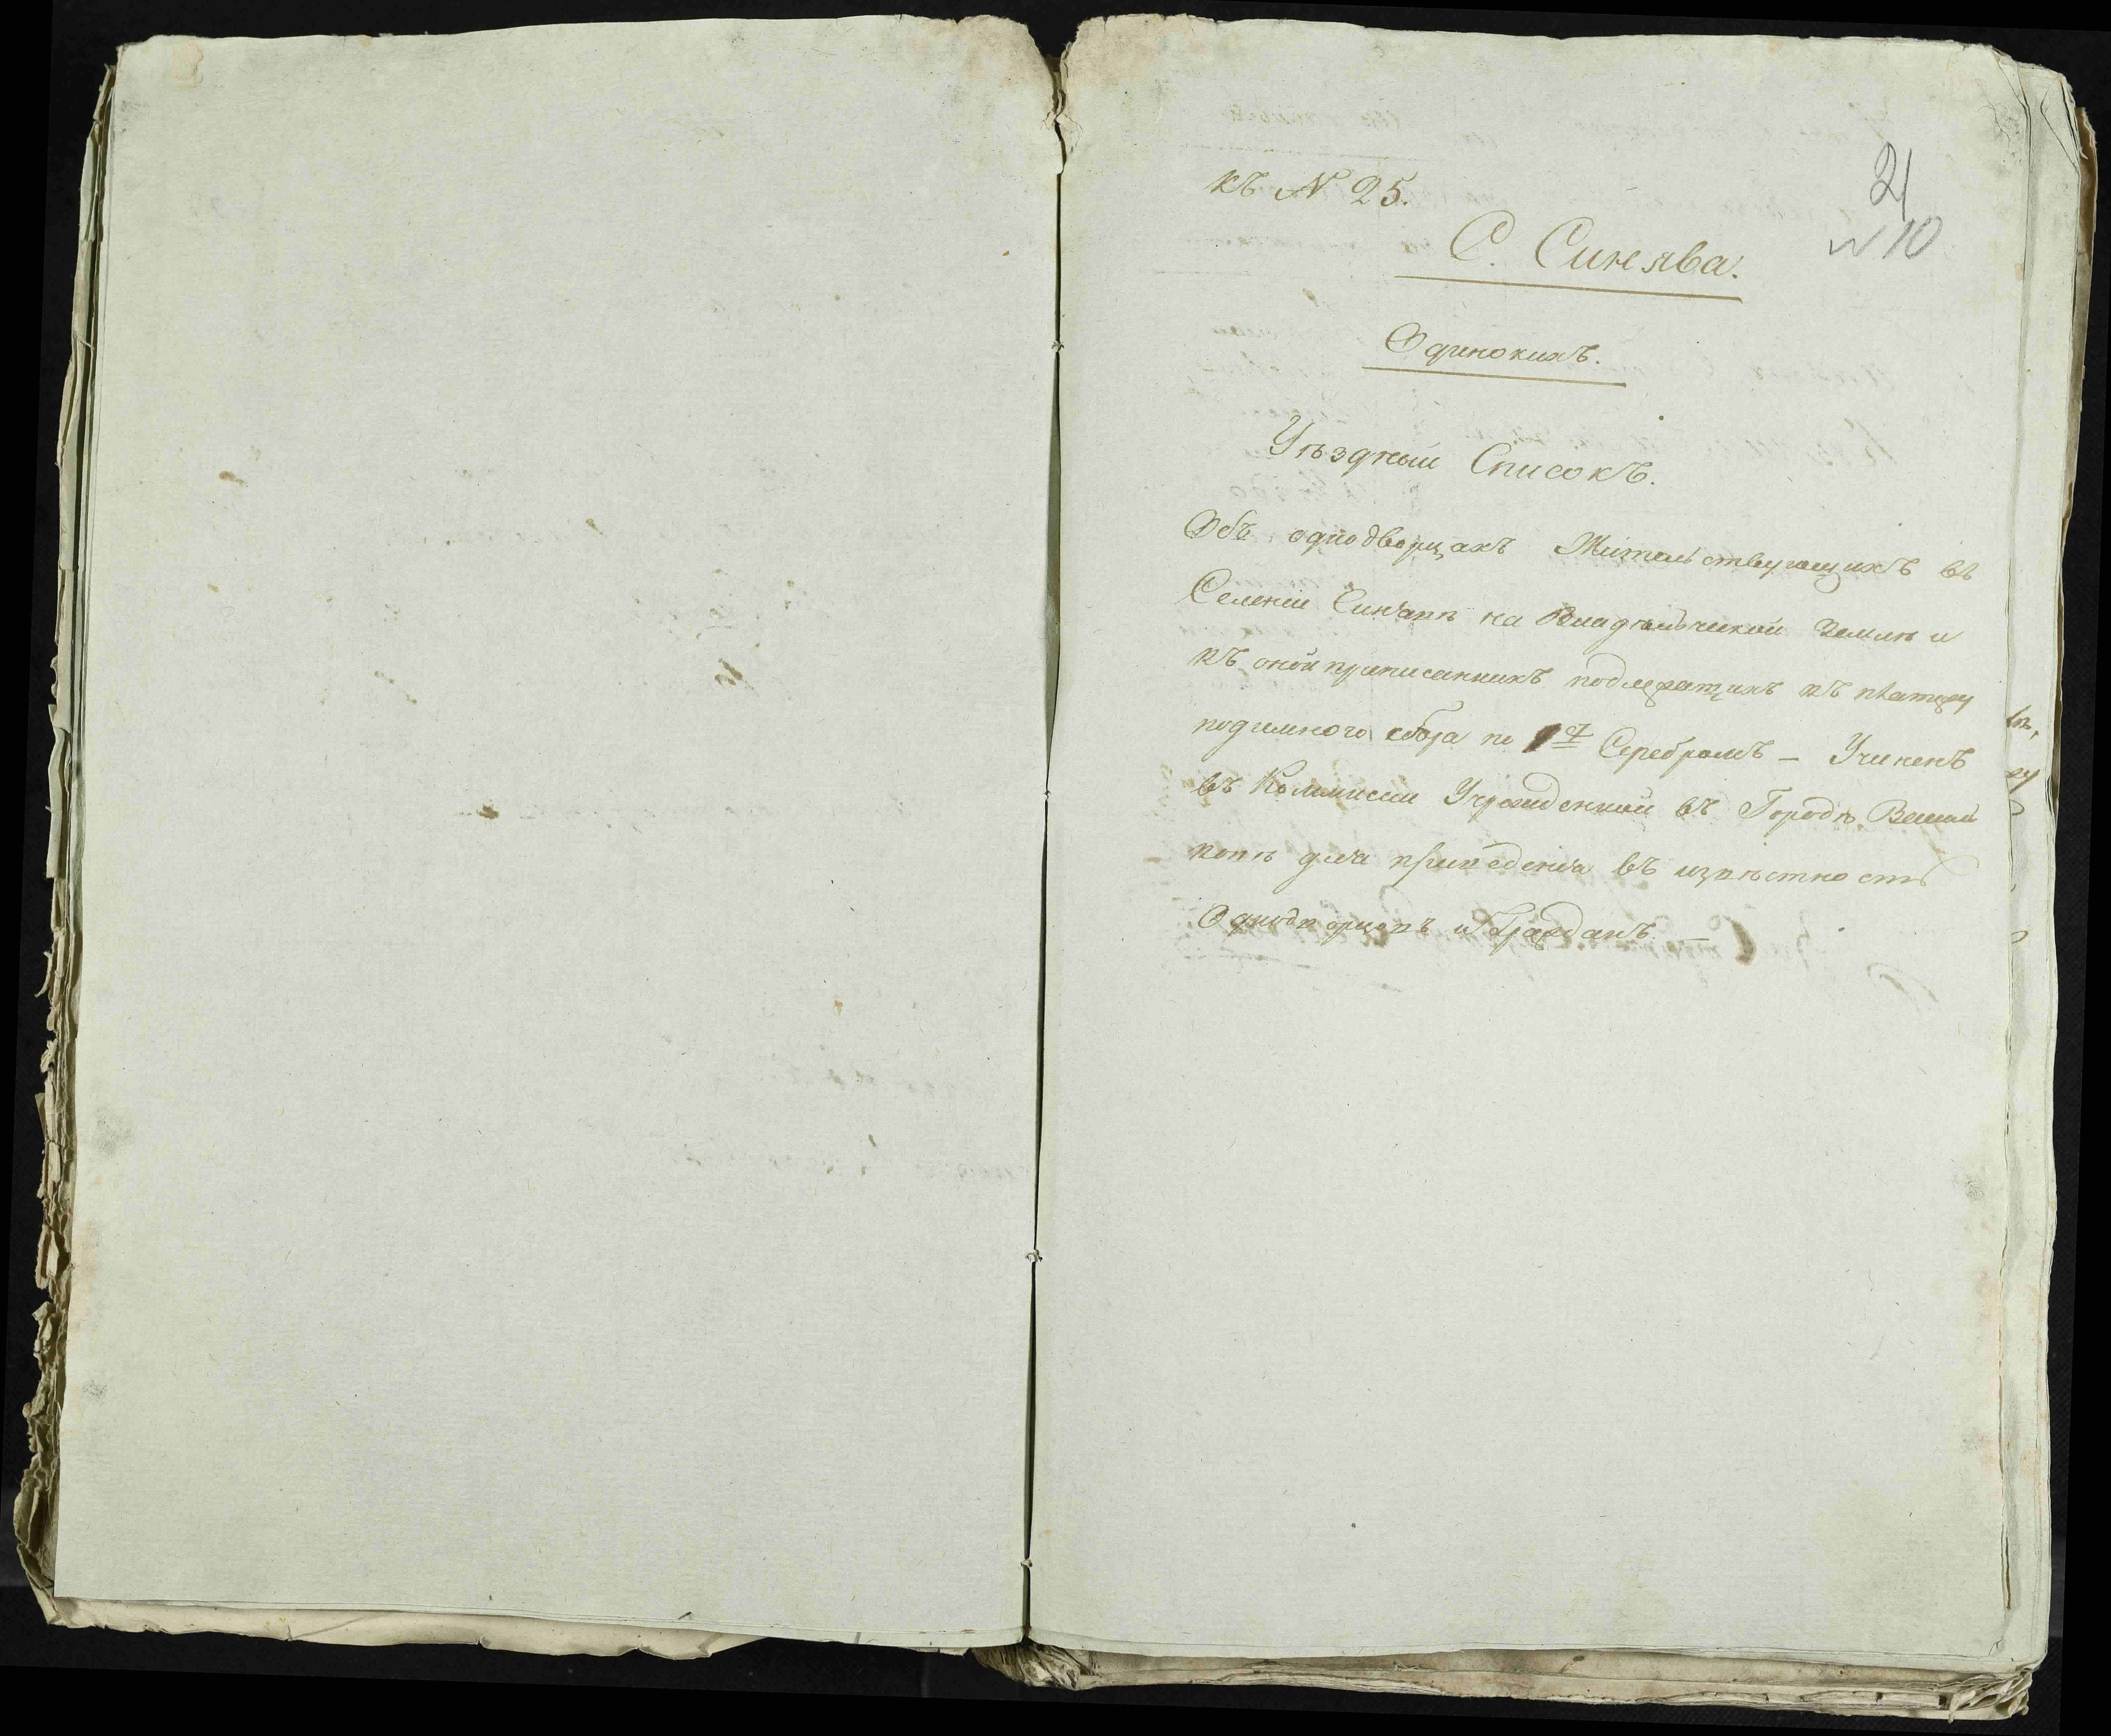 къ № 25.
21
10
С. Синява.
Одинокихъ.
Уѣздный Списокъ.
Объ однодворцахъ Жительствующихъ въ
Селеніи Синявѣ на Владѣльческой Землѣ и
къ оной приписанныхъ подлежащихъ къ платежу
подимного сбора по 1 Серебромъ — Учиненъ
въ Коммисіи Учрежденной въ Городѣ
для приведенія въ извѣстность
Однодворцовъ и Гражданъ. —